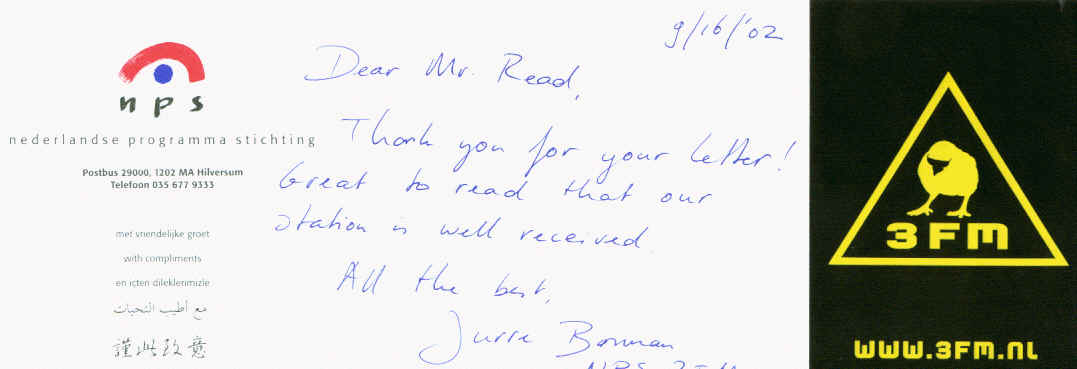 nps
nederlandse programma stichting
Postbus 29000, 1202 MA Hilversum
Telefoon 035 677 9333
met vriendelijke groet
with compliments
en içten dileklerimizle
مع أطيب التحيات
謹此致意
9/16/'02
Dear Mr. Read,
Thank you for your letter!
Great to read that our
station is well received.
All the best,
Jurre Bosman
NPS 3FM
3FM
WWW.3FM.NL